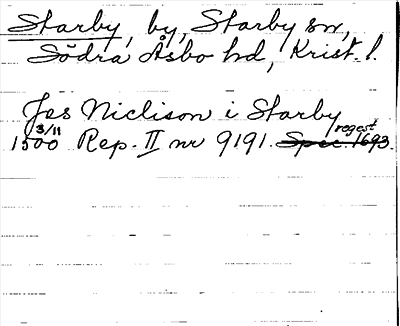 Starby, by, Starby sn,
Södra Åsbo hd, Krist. l.
Jes Niclison i Starby
3/11 1500 Rep. II nr 9191. Spec. 1693. regest